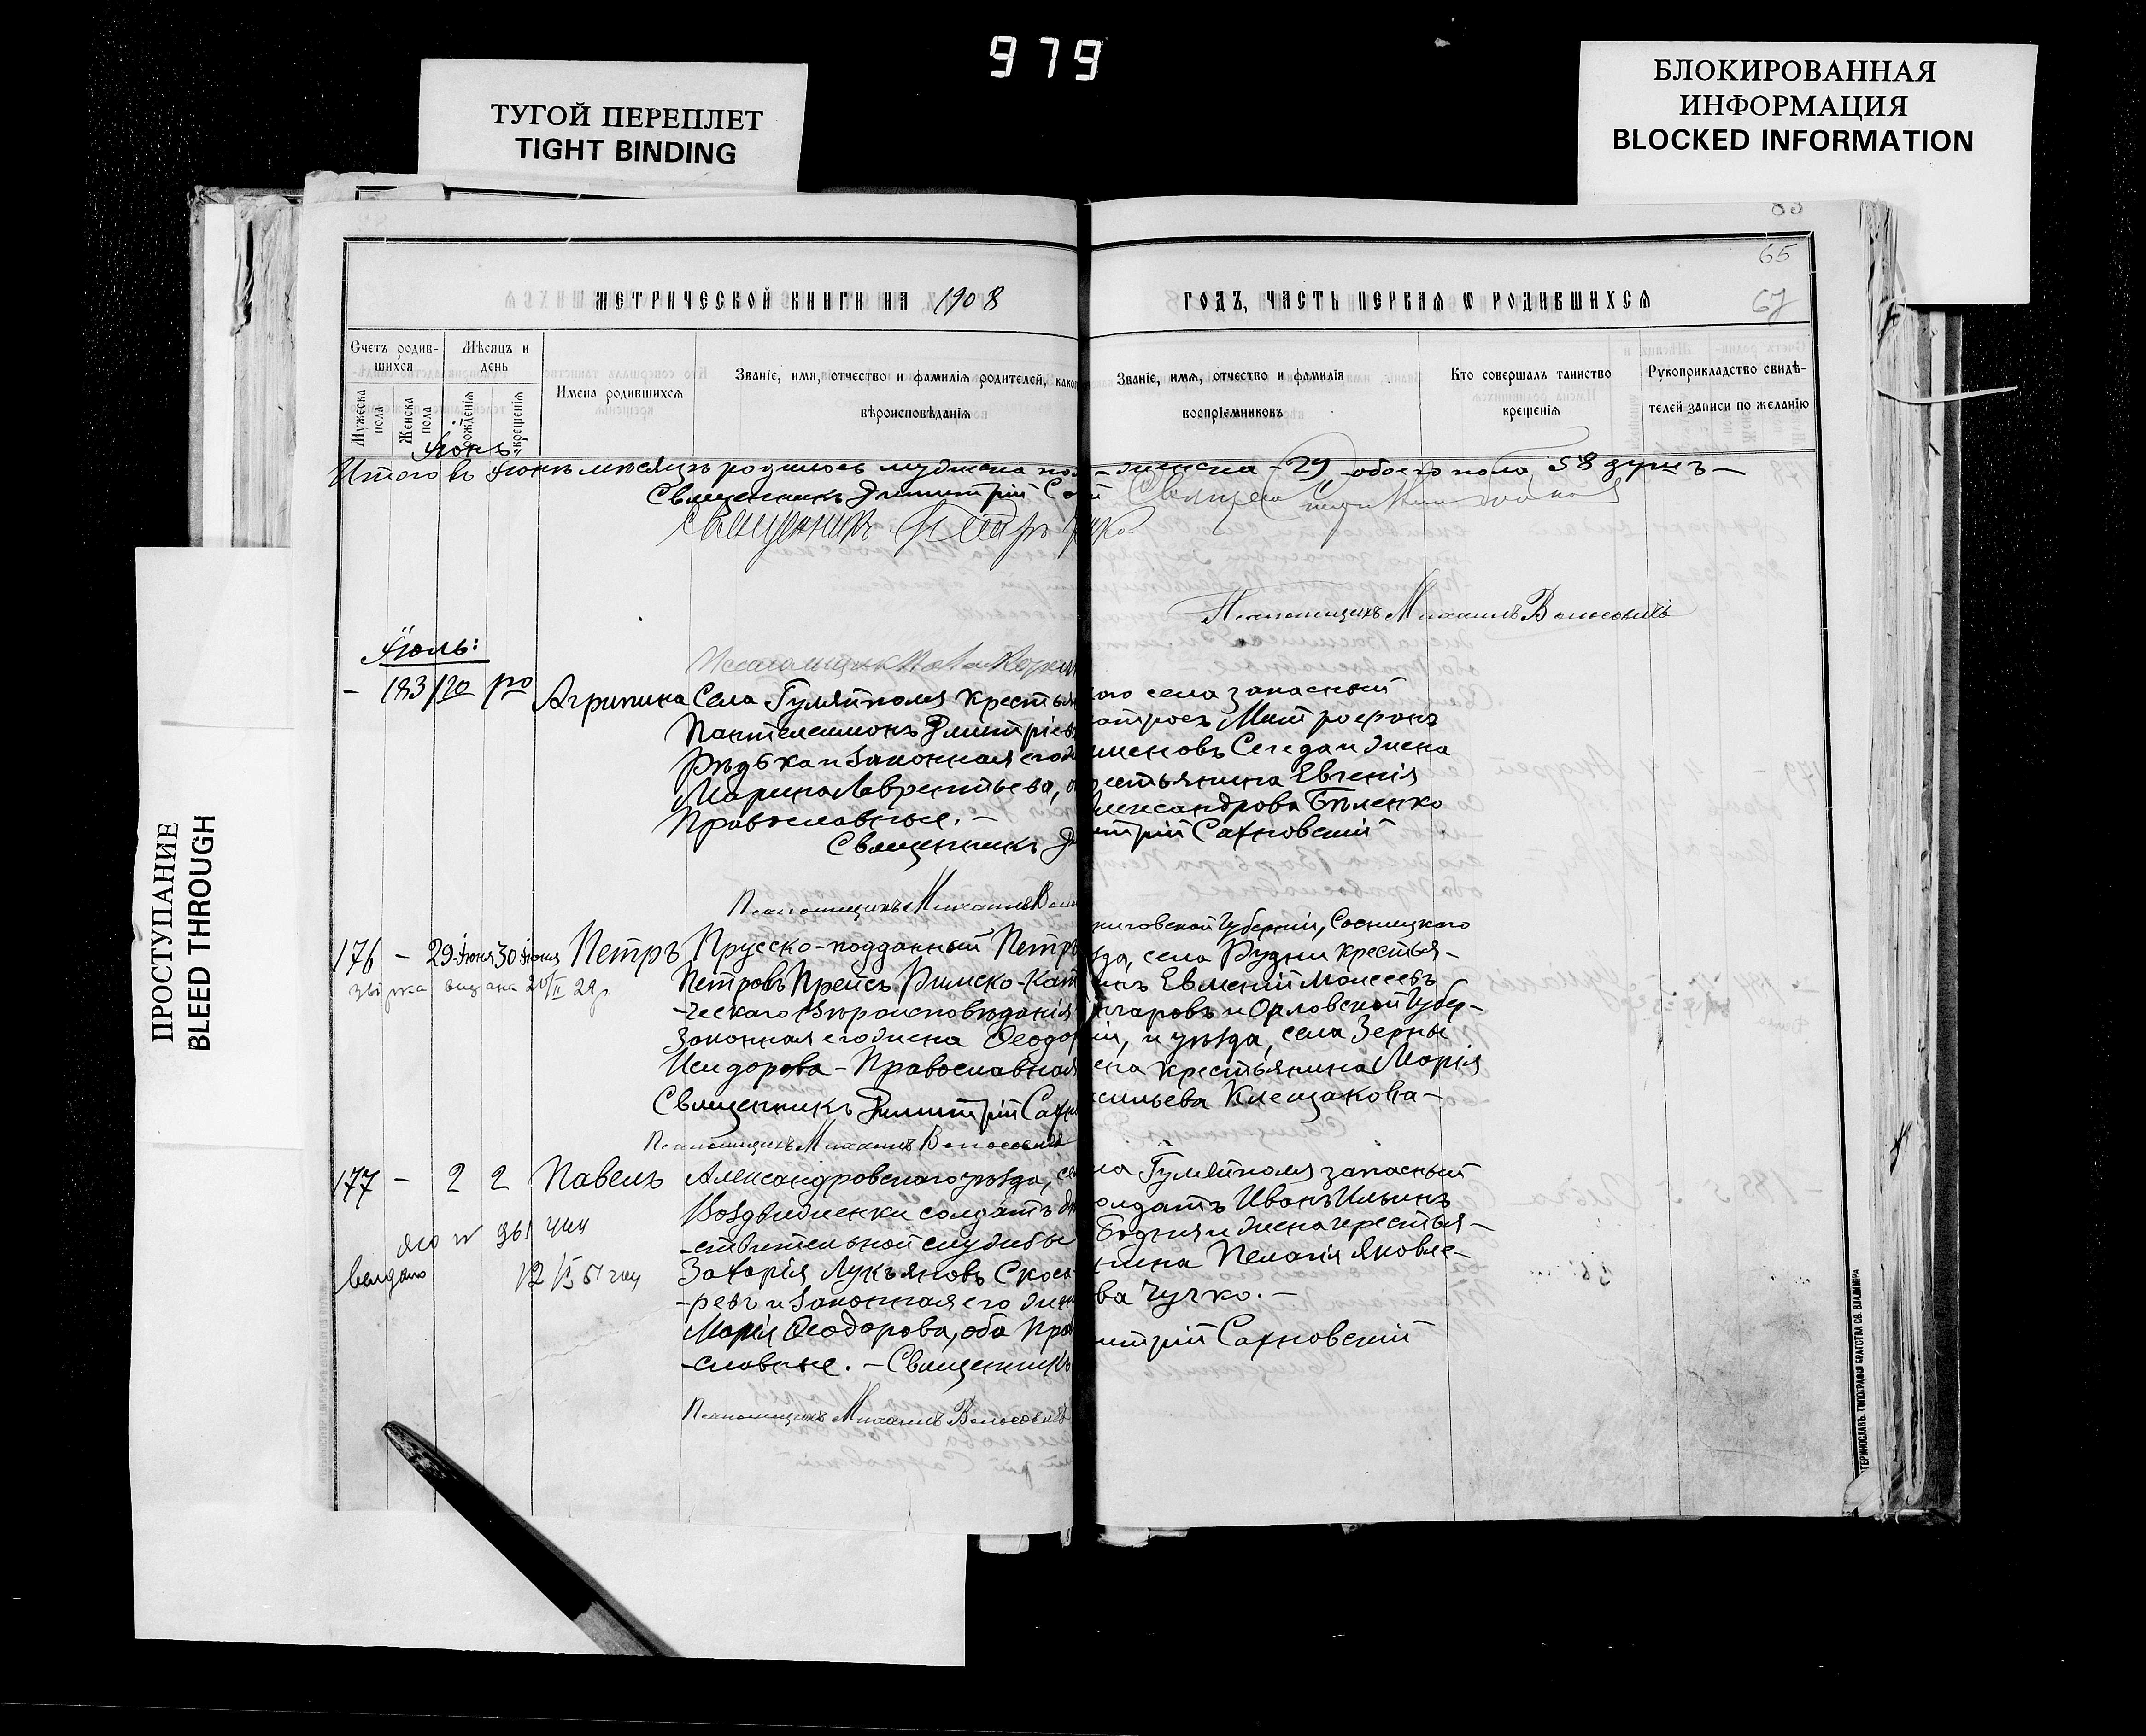 979
ТУГОЙ ПЕРЕПЛЕТ
TIGHT BINDING
БЛОКИРОВАННАЯ
ИНФОРМАЦИЯ
BLOCKED INFORMATION
ПРОСТУПАНИЕ
BLEED THROUGH
65
67
МЕТРИЧЕСКОЙ КНИГИ НА 1908
ГОДЪ, ЧАСТЬ ПЕРВАЯ Ѡ РОДИВШИХСЯ
Счетъ родив-
шихся
Мужеска пола
Женска пола
Мѣсяцъ и
день
рожденія
крещенія
Имена родившихся
Званіе, имя, отчество и фамилія родителей, како
вѣроисповѣданія
Званіе, имя, отчество и фамилія
воспріемниковъ
Кто совершалъ таинство
крещенія
Рукоприкладство свидѣ-
телей записи по желанію
Іюнь
Итого въ Іюнь мѣсяцъ родилось мужеска по
женска - 29, обоего пола 58 душъ -
Священникъ Димитрій Са
Священникъ
Псаломщикъ Михаилъ Волосовичъ
Іюль:
Псаломщик
- 183 1го 1го Агрипина
Села Гуляйполя крестья
Пантелеимонъ Димитріев
Рѣдька и законная его ж
Марина Лаврентьева, о
Православные. -
Священникъ Ди
ого села запасный
матросъ Митрофанъ
меновъ Сегеда и жена
рестьянина Евгенія
лександрова Бѣленко
итрій Сахновскій
Псаломщикъ Михаилъ Воло
176 - 29 Іюня 30 Іюня Петръ
выдана 20/II 29 г.
Прусско-подданный Петръ
Петровъ Прейсъ Римско-Кат
-ческаго Вѣроисповѣданія
Законная его жена Ѳеодор
Исидорова - Православная
Священникъ Димитрій Сахн
ниговской Губерніи, Сосницкаго
зда, села Рудни крестья-
инъ Евмений Моисеевъ
нчаровъ и Орловской Губер-
іи, и уѣзда, села Зерны
ена крестьянина Марія
сильева Клещакова -
Псаломщикъ Михаилъ Волосовичъ
177 - 2 2 Павелъ
12/I 51
Александровскаго уѣзда, се
Воздвиженки солдатъ дѣ
-ствительной службы
Захарія Лукьяновъ Скоса
-ревъ и законная его жен
Марія Ѳеодорова, оба Пра
-славные. - Священникъ
ла Гуляйполя запасный
олдатъ Иванъ Ильинъ
Бодня и жена крестья-
нина Пелагія Яковле-
ва Чучко. -
итрій Сахновскій
Псаломщикъ Михаилъ Волосовичъ
ТЕРИНОСЛАВЪ. ТИПОГРАФІЯ БРАТСТВА СВ. ВЛАДИМІРА